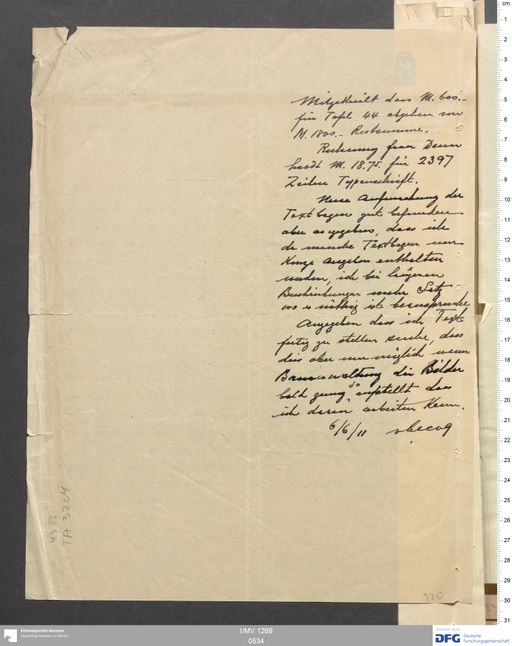 Mitgetheilt dass M. 600.-
für Tafel 44 abgehen von
M. 1800.- Restsumme.
Rechnung Frau Denn
hardt M. 18.75 für 2397
Zeilen Typenschrift.
Neue Aufmachung der
Textbogen gut befunden
aber angegeben, dass ich
da manche Textbogen nur
kurze Angaben enthalten
werden, ich bei längeren
Beschreibungen mehr Satz
wo es nöthig ist beanspruche
Angegeben dass ich Text
fertig zu stellen suche, dass
dies aber nur möglich wenn
Bauverwaltung die Bilder
bald genug so aufstellt dass
ich daran arbeiten kann.
6/6/11
43 82
TA 3204
320
Ethnologisches Museum
Staatliche Museen zu Berlin
I/MV 1269
0534
DFG Deutsche
Forschungsgemeinschaft